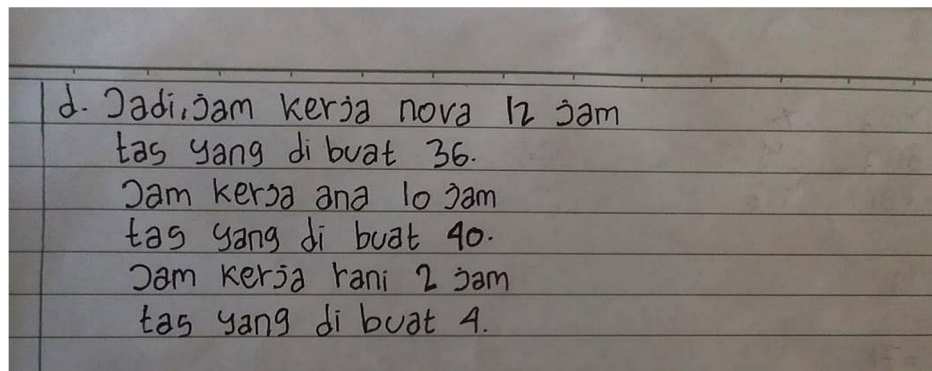 d. Jadi, jam kerja nova 12 jam
tas yang di buat 36.
Jam kerja ana 10 jam
tas yang di buat 40.
Jam kerja rani 2 jam
tas yang di buat 4.